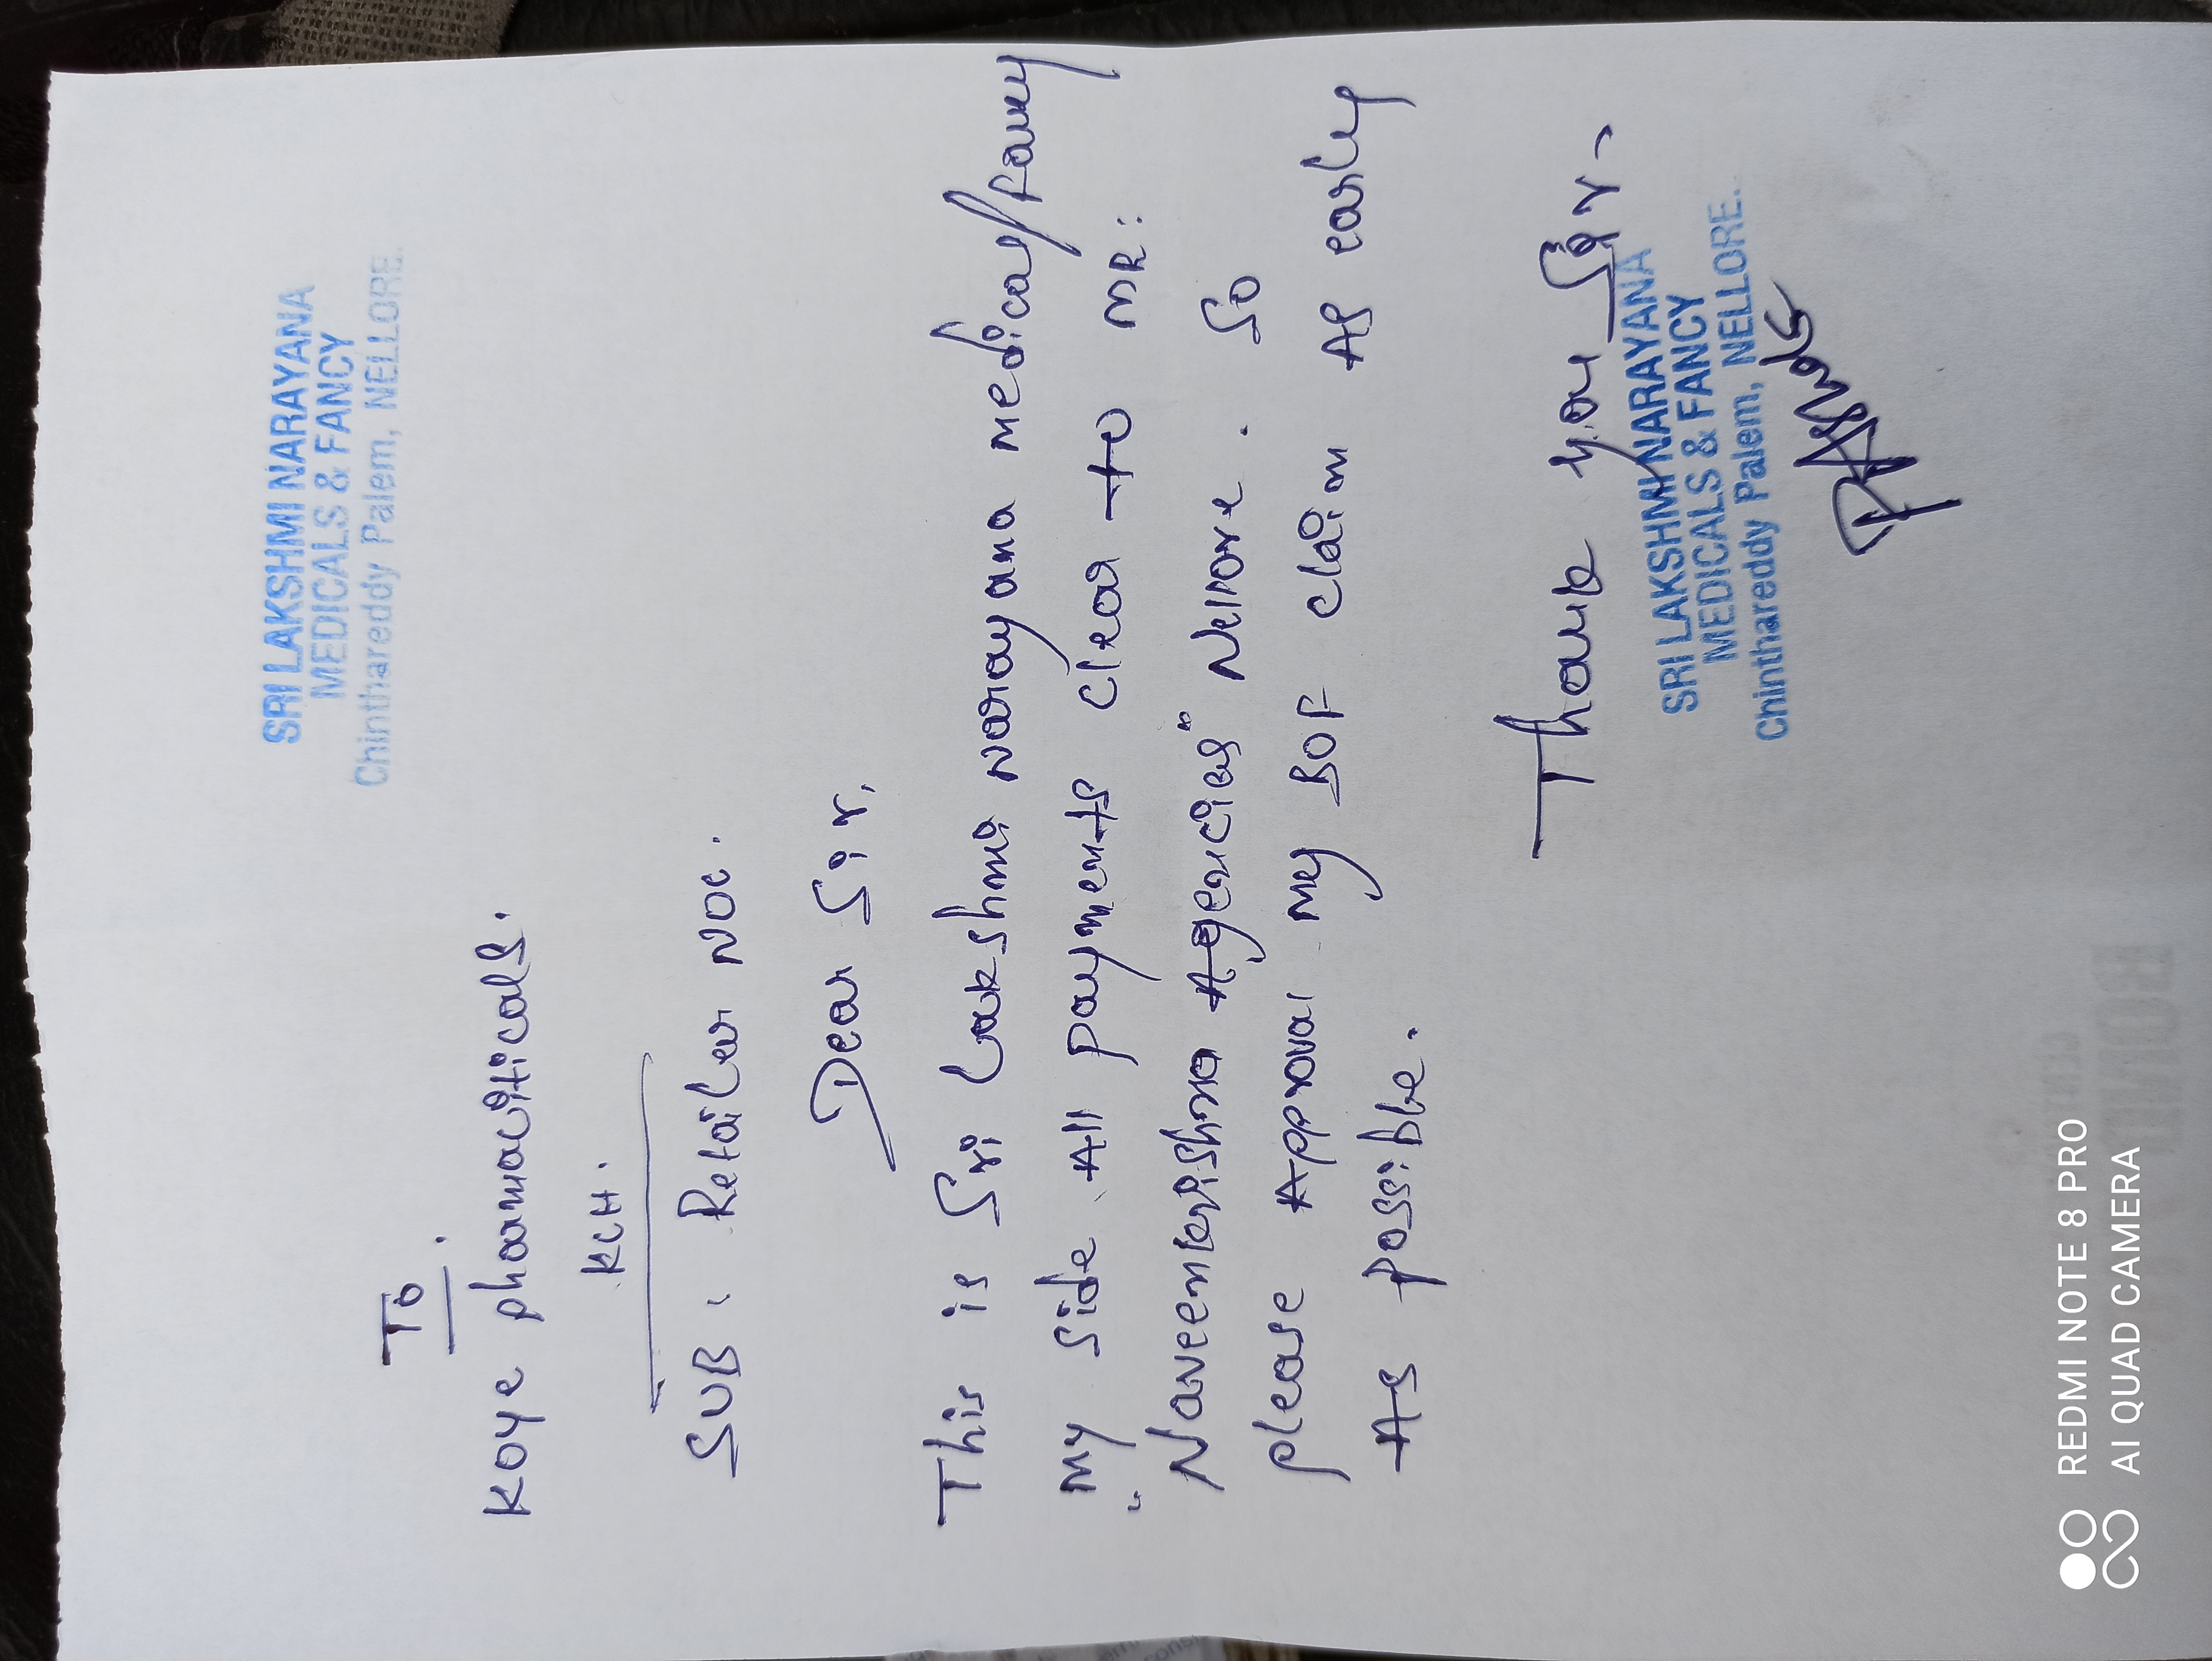 SRI LAKSHMI NARAYANA
MEDICALS & FANCY
Chinthareddy Palem, NELLORE.
To.
Koye pharmaciticals.
KCH.
SUB: Retailer NOC.
Dear Sir,
This is Sri Lakshmi Narayana medical/fancy
My side All payments clear to MR:
"Naveenkrishna Agencies" Nellore. So
please Approval my SOF claim As early
As possible.
Thank you Sir.
SRI LAKSHMI NARAYANA
MEDICALS & FANCY
Chinthareddy Palem, NELLORE.
REDMI NOTE 8 PRO
AI QUAD CAMERA